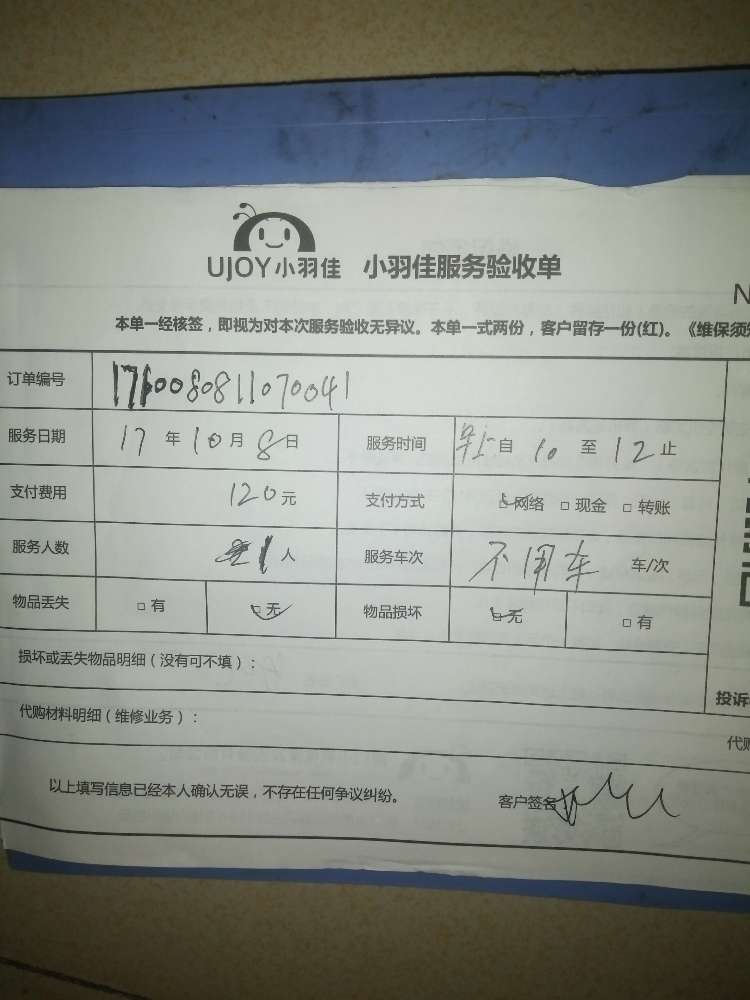 UJOY小羽佳 小羽佳服务验收单
N
本单一经核签，即视为对本次服务验收无异议。本单一式两份，客户留存一份(红)。《维保须知
订单编号
服务日期 17 年 10 月 8 日 服务时间 早上 自 10 至 12 止
支付费用 120 元 支付方式 ☑网络 □现金 □转账
服务人数 1 人 服务车次 不用车 车/次
物品丢失 □有 ☑无 物品损坏 ☑无 □有
损坏或丢失物品明细（没有可不填）：
投诉
代购材料明细（维修业务）：
代购
以上填写信息已经本人确认无误，不存在任何争议纠纷。 客户签名